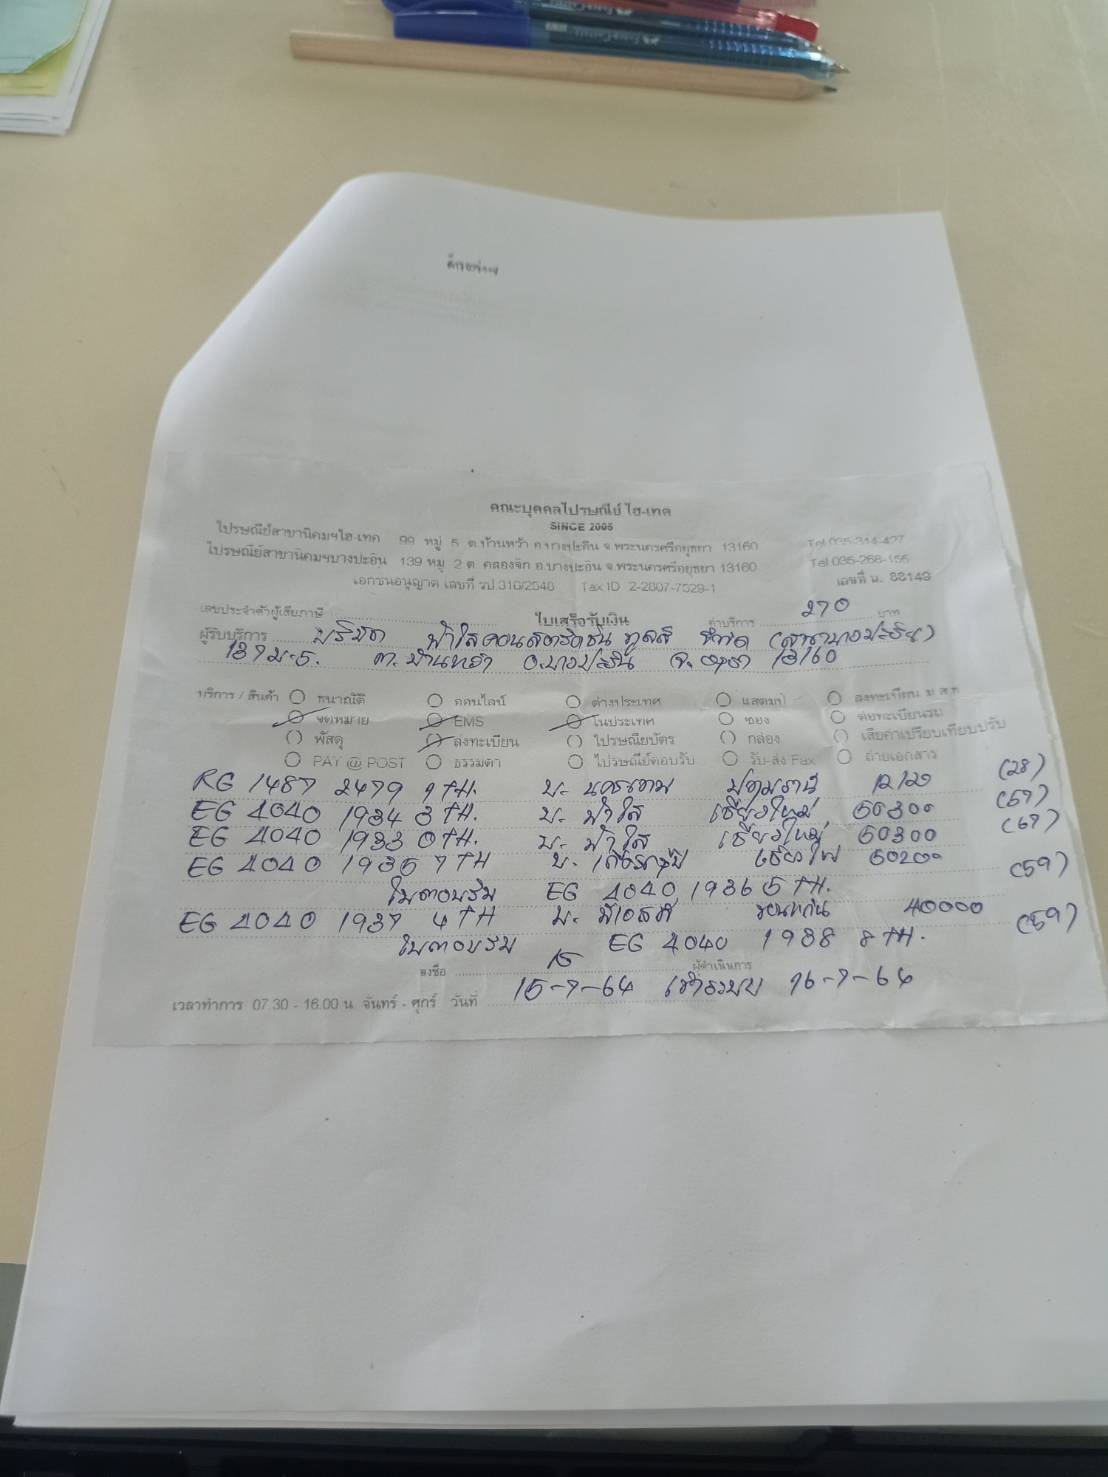 คณะบุคคลไปรษณีย์ ไฮ-เทค
SINCE 2005
ไปรษณีย์สาขานิคมฯไฮ-เทค 99 หมู่ 5 ต.บ้านหว้า อ.บางปะอิน จ.พระนครศรีอยุธยา 13160 Tel.035-314-427
ไปรษณีย์สาขานิคมฯบางปะอิน 139 หมู่ 2 ต.คลองจิก อ.บางปะอิน จ.พระนครศรีอยุธยา 13160 Tel.035-258-155
เอกชนอนุญาต เลขที่ รป.316/2548 Tax ID 2-2807-7529-1 เลขที่ น. 88149
เลขประจำตัวผู้เสียภาษี ใบเสร็จรับเงิน ค่าบริการ 270 บาท
ผู้รับบริการ บริษัท ฟ้าใสคอนสตรัคชั่น ทูลส์ จำกัด (สาขาบางปะอิน)
137 ม.5. ต.บ้านหว้า อ.บางปะอิน จ.อยุธยา 13160
บริการ / สินค้า ธนาณัติ ออนไลน์ ต่างประเทศ แสตมป์ ลงทะเบียน ม.ส.ท
จดหมาย EMS ในประเทศ ซอง ต่อทะเบียนรถ
พัสดุ ลงทะเบียน ไปรษณียบัตร กล่อง เสียค่าเปรียบเทียบปรับ
PAY @ POST ธรรมดา ไปรษณีย์ตอบรับ รับ-ส่ง Fax ถ่ายเอกสาร
RG 1487 2479 9 TH. บ. ปทุมธานี 12120 (28)
EG 4040 1934 3 TH. บ. ฟ้าใส เชียงใหม่ 50300 (57)
EG 4040 1933 0 TH. บ. ฟ้าใส เชียงใหม่ 50300 (67)
EG 4040 1935 7 TH บ. 50200 (59)
ใบตอบรับ EG 4040 1936 5 TH.
EG 4040 1937 4 TH บ. ขอนแก่น 40000 (59)
ใบตอบรับ EG 4040 1938 8 TH.
ลงชื่อ ผู้ดำเนินการ
เวลาทำการ 07.30 - 16.00 น. จันทร์ - ศุกร์ วันที่ 15-7-64 เข้าระบบ 16-7-64